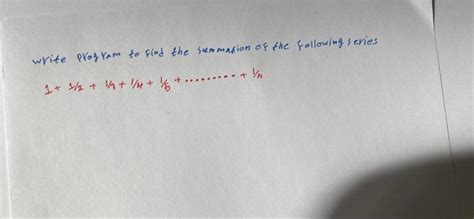 write program to find the summation of the following series
1 + 1/2 + 1/3 + 1/4 + 1/5 + ......... + 1/n